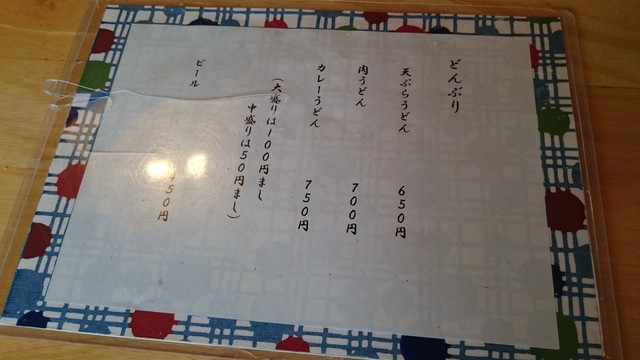 どんぶり
天ぷらうどん 650円
肉うどん 700円
カレーうどん 750円
(大盛りは100円まし
中盛りは50円まし)
ビール 450円